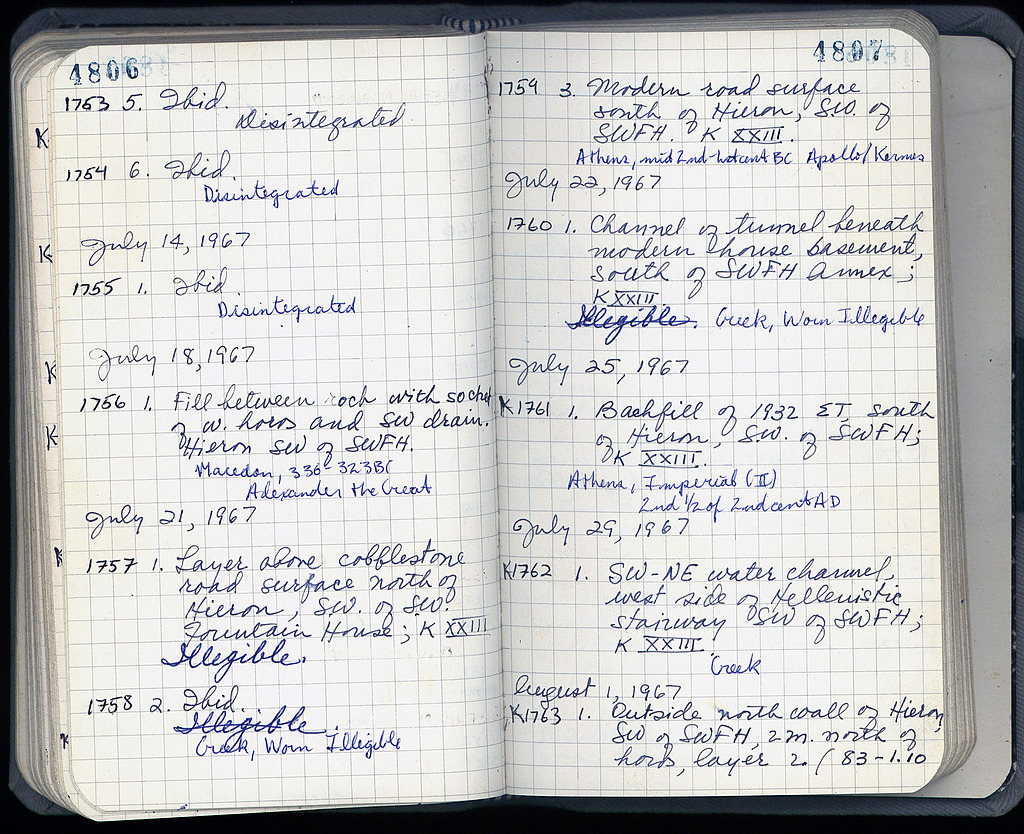 4806
1753 5. Ibid.
Disintegrated
K
1754 6. Ibid.
Disintegrated
July 14, 1967
K
1755 1. Ibid.
Disintegrated
July 18, 1967
K
1756 1. Fill between rock with socket
K
of w. horos and SW drain.
Hieron SW of SWFH.
Macedon, 336-323BC
Alexander the Great
July 21, 1967
K
1757 1. Layer above cobblestone
road surface north of
Hieron, SW. of SW.
Fountain House; K XXIII
Illegible.
1758 2. Ibid.
Illegible.
K
Greek, Worn Illegible
4807
1759 3. Modern road surface
south of Hieron, SW. of
SWFH. K XXIII.
Athens, mid 2nd-1st cent BC Apollo/Kernos
July 22, 1967
1760 1. Channel of tunnel beneath
modern house basement,
south of SWFH Annex;
K XXIII.
Illegible. Greek, Worn Illegible
July 25, 1967
K1761 1. Backfill of 1932 ΣT, south
of Hieron, SW. of SWFH;
K XXIII.
Athens, Imperial (II)
2nd 1/2 of 2nd cent AD
July 29, 1967
K1762 1. SW-NE water channel,
west side of Hellenistic
stairway SW of SWFH;
K XXIII.
Greek
August 1, 1967
K1763 1. Outside north wall of Hieron,
SW of SWFH, 2m. north of
horos, layer 2. (83-1.10